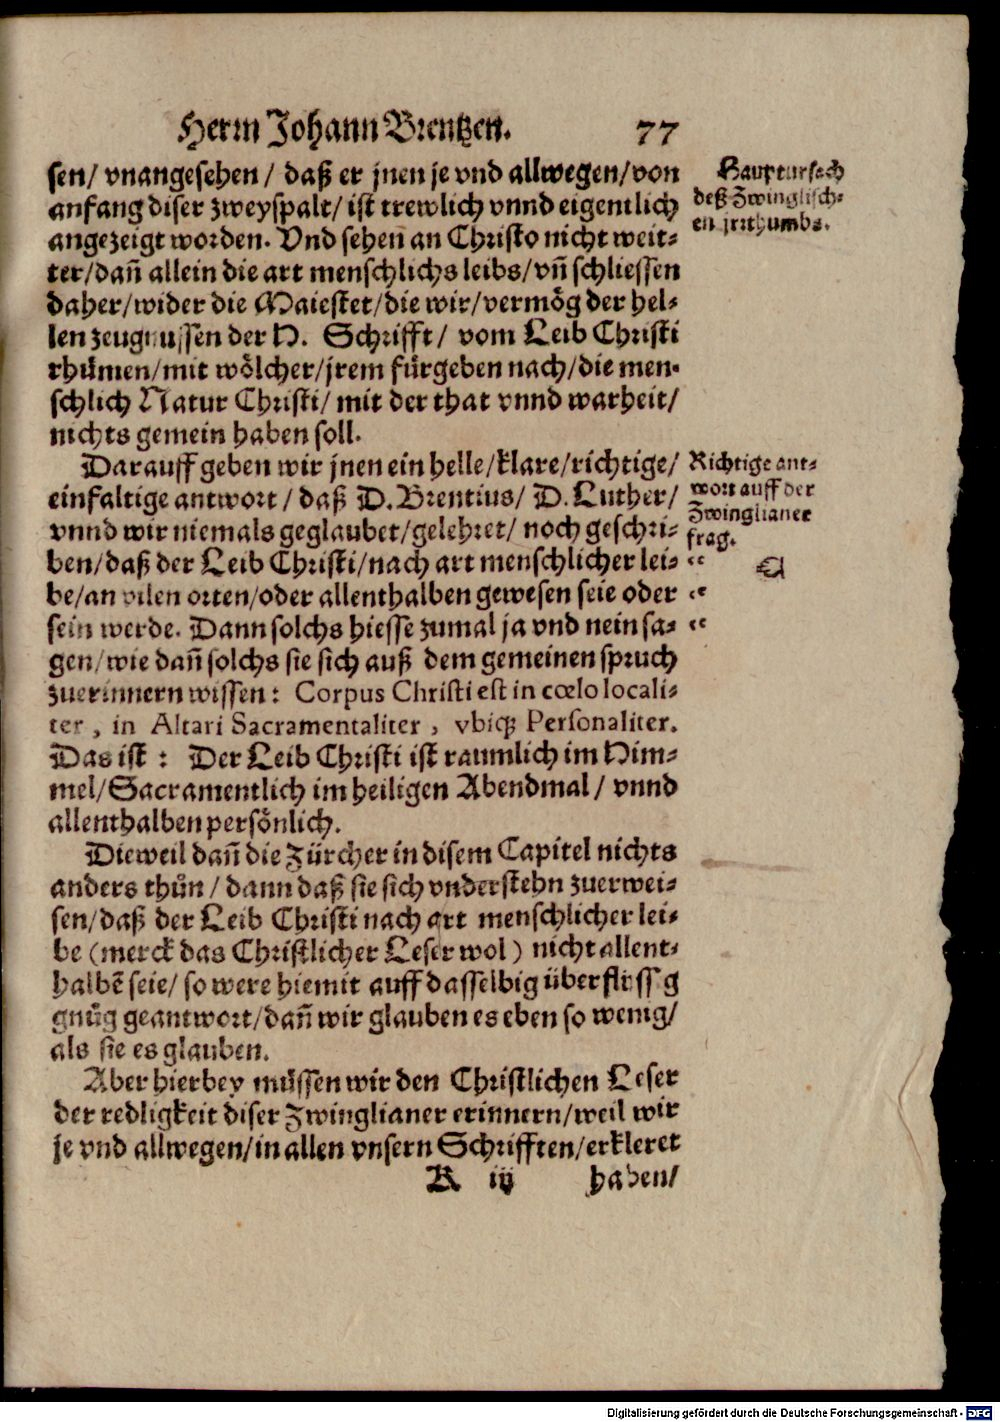 Herrn Johann Brentzen. 77
sen/ vnangesehen / daß er jnen je vnd allwegen/von
anfang diser zweyspalt/ ist trewlich vnnd eigentlich
angezeigt worden. Vnd sehen an Christo nicht weit-
ter/dañ allein die art menschlichs leibs/vñ schliessen
daher/wider die Maiestet/die wir/vermög der hel-
len zeugnussen der H. Schrifft/ vom Leib Christi
rhůmen/mit wölcher/jrem fürgeben nach/die men-
schlich Natur Christi/ mit der that vnnd warheit/
nichts gemein haben soll.
Hauptursach
deß Zwinglisch-
en jrrthumbs.
Darauff geben wir jnen ein helle/klare/richtige/
einfaltige antwort / daß D. Brentius/ D. Luther/
vnnd wir niemals geglaubet/gelehret/ noch geschri-
ben/daß der Leib Christi/nach art menschlicher lei-
be/an vilen orten/oder allenthalben gewesen seie oder
sein werde. Dann solchs hiesse zumal ja vnd nein sa-
gen/wie dañ solchs sie sich auß dem gemeinen spruch
zuerinnern wissen: Corpus Christi est in cœlo locali-
ter, in Altari Sacramentaliter, vbiqꝫ Personaliter.
Das ist : Der Leib Christi ist raumlich im Him-
mel/Sacramentlich im heiligen Abendmal/ vnnd
allenthalben persönlich.
Richtige ant-
wort auff der
Zwinglianer
frag.
“
“
“
Dieweil dañ die Zürcher in disem Capitel nichts
anders thůn / dann daß sie sich vnderstehn zuerwei-
sen/daß der Leib Christi nach art menschlicher lei-
be (merck das Christlicher Leser wol) nicht allent-
halbē seie/ so were hiemit auff dasselbig überflüssig
gnůg geantwort/dañ wir glauben es eben so wenig/
als sie es glauben.
Aber hierbey müssen wir den Christlichen Leser
der redligkeit diser Zwinglianer erinnern/weil wir
je vnd allwegen/in allen vnsern Schrifften/erkleret
K iij haben/
Digitalisierung gefördert durch die Deutsche Forschungsgemeinschaft - DFG